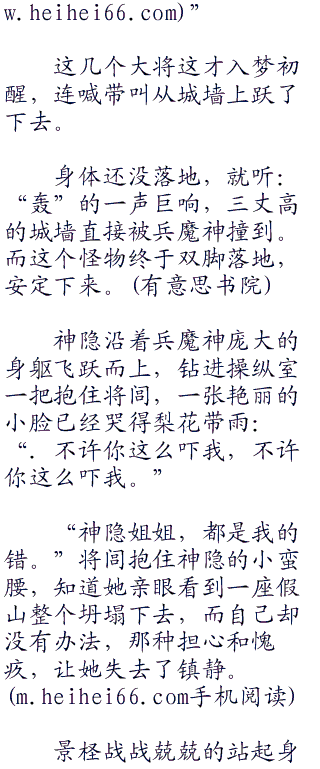 w.heihei66.com)”
这几个大将这才入梦初
醒，连喊带叫从城墙上跃了
下去。
身体还没落地，就听：
“轰”的一声巨响，三丈高
的城墙直接被兵魔神撞到。
而这个怪物终于双脚落地，
安定下来。(有意思书院)
神隐沿着兵魔神庞大的
身躯飞跃而上，钻进操纵室
一把抱住将闾，一张艳丽的
小脸已经哭得梨花带雨：
“．不许你这么吓我，不许
你这么吓我。”
“神隐姐姐，都是我的
错。”将闾抱住神隐的小蛮
腰，知道她亲眼看到一座假
山整个坍塌下去，而自己却
没有办法，那种担心和愧
疚，让她失去了镇静。
(m.heihei66.com手机阅读)
景柽战战兢兢的站起身